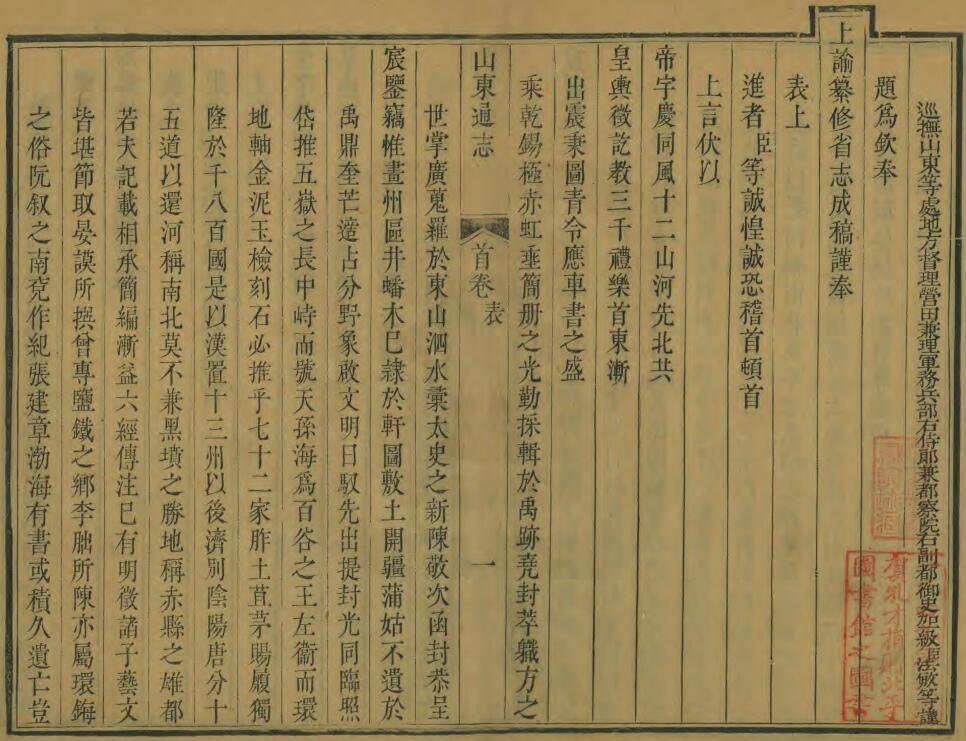 巡撫山東等處地方督理營田兼理軍務兵部右侍郎兼都察院右副都御史加級法敏等謹
題爲欽奉
上諭纂修省志成稿謹奉
表上
進者臣等誠惶誠恐稽首頓首
上言伏以
帝宇慶同風十二山河先北共
皇輿徵訖教三千禮樂首東漸
出震秉圖青令應車書之盛
乘乾錫極赤虹垂簡册之光勤採輯於禹跡堯封萃職方之
山東通志
首卷 表
一
世掌廣蒐羅於東山泗水彙太史之新陳敬次函封恭呈
宸鑒竊惟畫州區井蟠木已隸於軒圖敷土開疆蒲姑不遺於
禹鼎奎芒遥占分野象啟文明日馭先出提封光同臨照
岱推五嶽之長中峙而號天孫海爲百谷之王左衞而環
地軸金泥玉檢刻石必推乎七十二家胙土苴茅賜履獨
隆於千八百國是以漢置十三州以後濟别陰陽唐分十
五道以還河稱南北莫不兼黑墳之勝地稱赤縣之雄都
若夫記載相承簡編漸益六經傳注已有明徵諸子藝文
皆堪節取晏謨所撰曾專鹽鐵之鄉李朏所陳亦屬環鋂
之俗阮叙之南兖作紀張建章渤海有書或積久遺亡豈
國書館之圖書